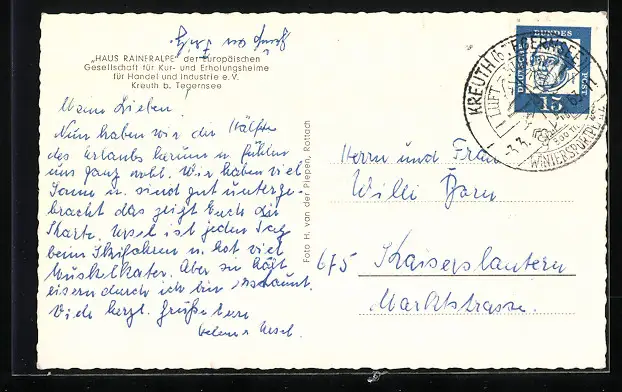 „HAUS RAINERALPE" der Europäischen
Gesellschaft für Kur- und Erholungsheime
für Handel und Industrie e. V.
Kreuth b. Tegernsee
Gruß an
Meine Lieben!
Nun haben wir die Hälfte
des Urlaubs herum u. fühlen
uns ganz wohl. Wir haben viel
Sonne u. sind gut unterge-
bracht das zeigt Euch die
Karte. Ursel ist jeden Tag
beim Skifahren u. hat viel
Muskelkater. Aber sie hält
eisern durch ich bin erstaunt.
Viele herzl. Grüße Eure
u. Ursel.
Foto H. van der Piepen, Rottach
DEUTSCHE BUNDESPOST
15
KREUTH (b. TEGERNSEE)
LUFT
WINTERSPORTPLATZ
Herrn und Frau
Willi
675 Kaiserslautern
Marktstrasse.